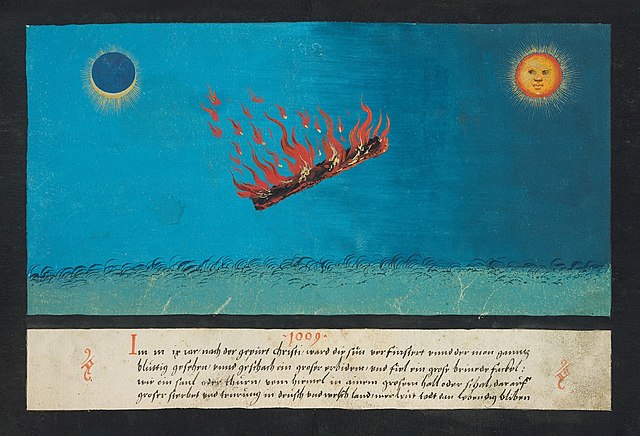 1009
Im m ix iar nach der gepürt christi ward die sün verfinstert vnnd der mon gantz
blüttig gesehen vnnd geschach ein groser erdidem vnd fiel ein grose brinede fackel:
wie ein saul oder thurn vom himel in ainem grosem hall oder schal, darauff
groser sterbet vnd teurung in deusch vnd welsch land todt dan lebendig bliben